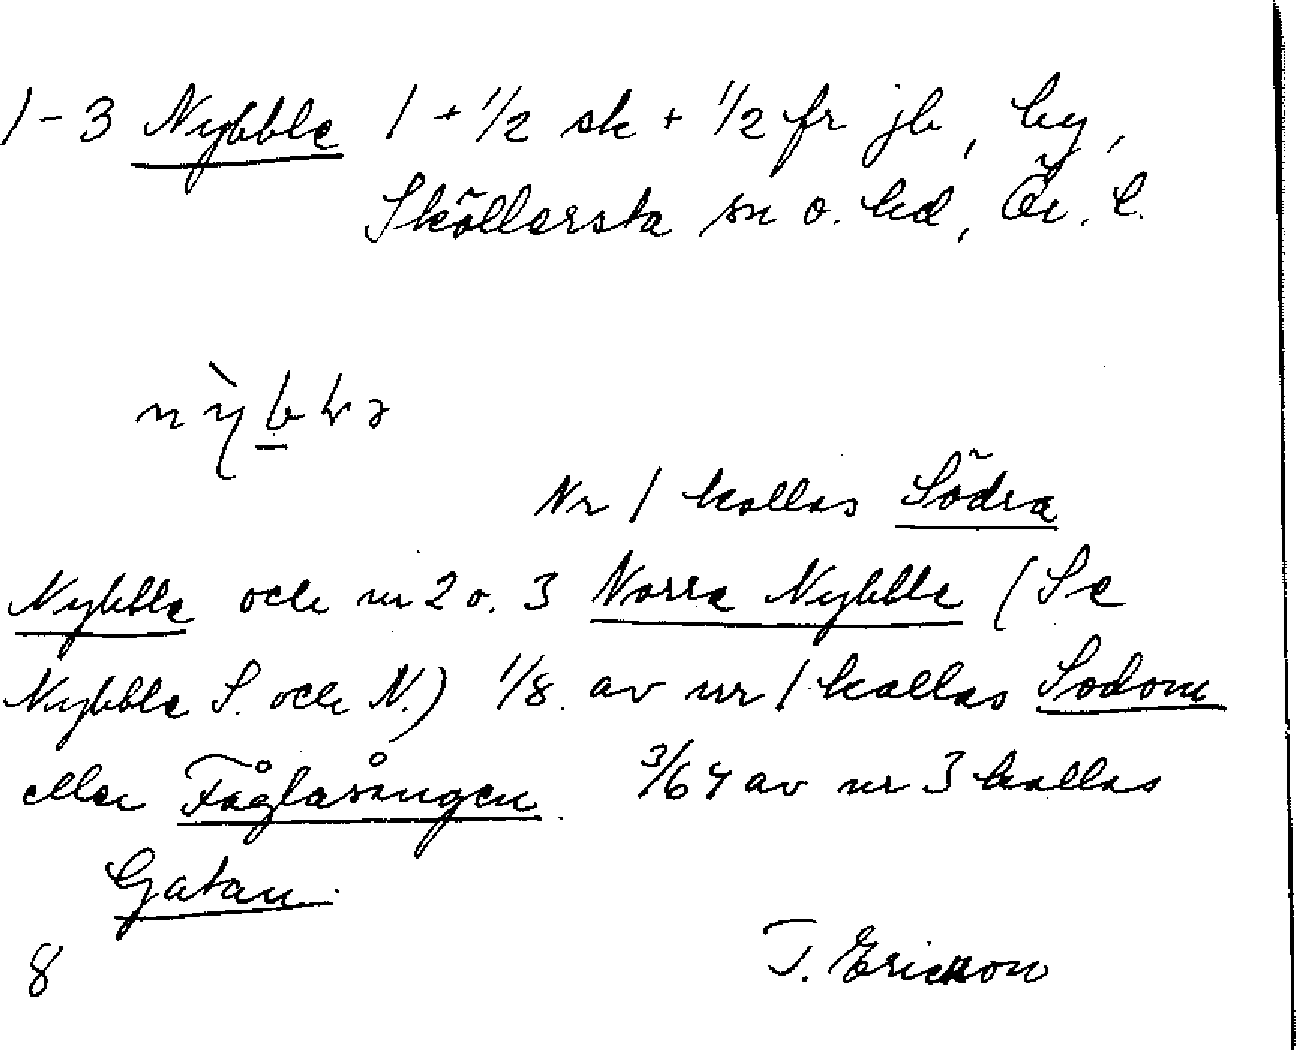 1-3 Nybble 1 + 1/2 sk + 1/2 fr jb, by,
Sköllersta sn o. hd, Ör. l.
Nr 1 kallas Södra
Nybble och nr 2 o. 3 Norra Nybble (Se
Nybble S. och N.) 1/8 av nr 1 kallas Sodom
eller Fågfasången 3/64 av nr 3 kallas
Gatan.
8 T. Ericsson